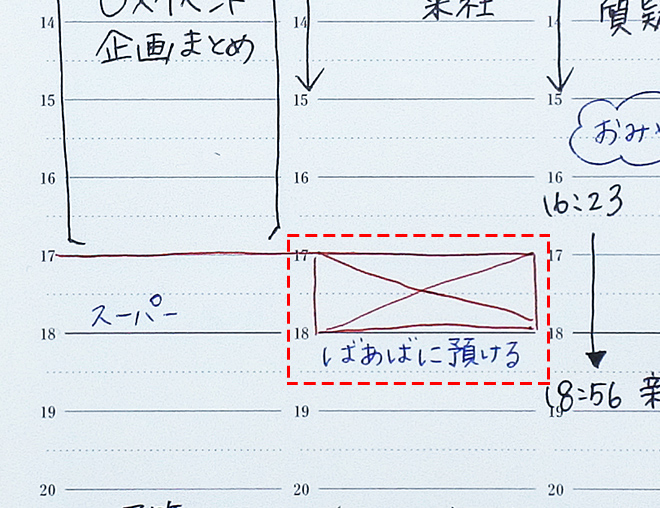 14
企画まとめ
15
16
17
スーパー
18
19
20
14
来社
15
16
17
18
ばあばに預ける
19
20
14
15
16
16:23
17
18
18:56
19
20